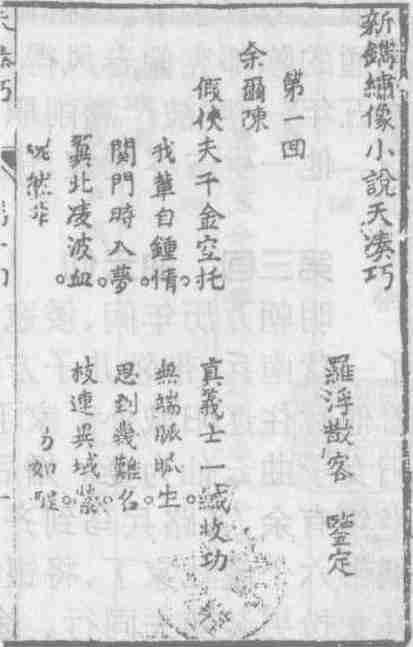 新鐫繡像小說天湊巧
羅浮散客 鑒定
第一回
余爾陳
假俠夫千金空托 真義士一緘收功
我輩自鍾情。無端脈脈生。
門時入夢 思到幾難名。
冀北凌波血。枝連異域縈。
恍然 方如